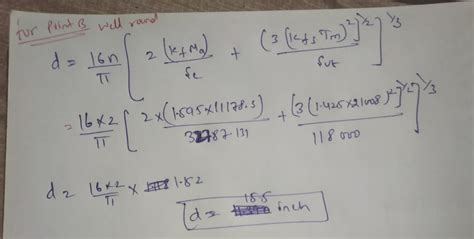 For Point B well round
d = 16n/π [ 2 (kf Ma)/fe + (3 (kfs Tm)²)^1/2 / fut ]^1/3
= 16×2/π [ 2×(1.595×11178.3)/32787.131 + (3 (1.425×21008)²)^1/2 / 118000 ]^1/3
d = 16×2/π × 1.82
d = 18.5 inch